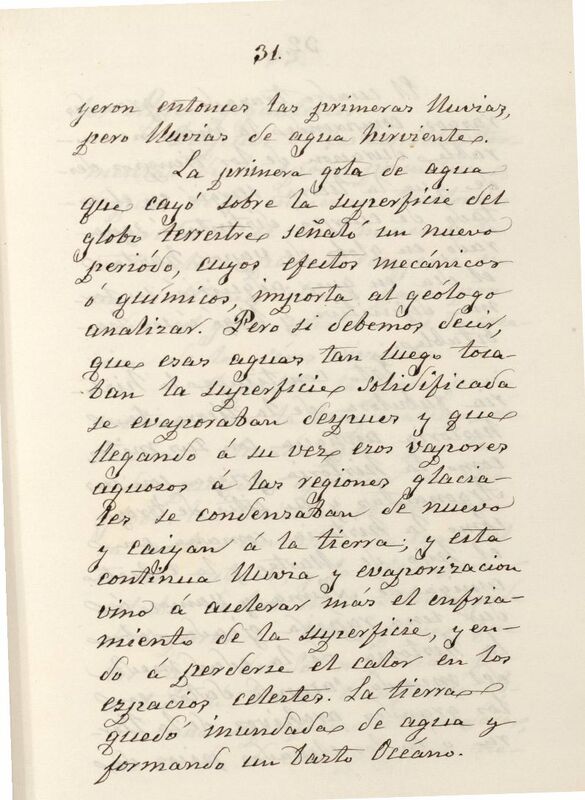 31.
yeron entonces las primeras lluvias,
pero lluvias de agua hirviente.
La primera gota de agua
que cayó sobre la superficie del
globo terrestre señaló un nuevo
periódo, cuyos efectos mecánicos
ó químicos, importa al geólogo
analizar. Pero si debemos decir,
que esas aguas tan luego toca-
ban la superficie solidificada
se evaporaban despues y que
llegando á su vez esos vapores
aguosos á las regiones glacia-
les se condensaban de nuevo
y caiyan á la tierra; y esta
continua lluvia y evaporizacion
vino á acelerar más el enfria-
miento de la superficie, yen-
do á perderse el calor en los
espacios celestes. La tierra
quedó inundada de agua y
formando un basto Océano.